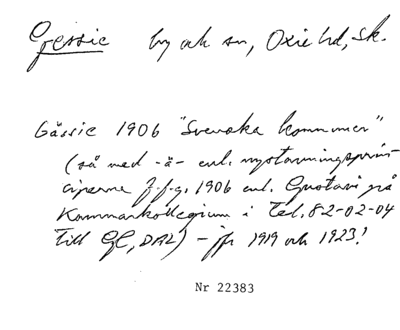 Gessie by och sn, Oxie hd, Sk.
Gässie 1906 "Svenska kommuner"
(så med -ä- enl. nystavningsprin-
ciperna f.f.g. 1906 enl. Gustavi på
Kammarkollegium i Tel. 82-02-04
till GE, DAL) - jfr 1919 och 1923!
Nr 22383